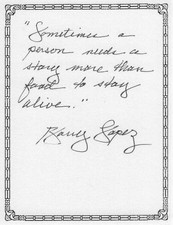 "Sometimes a
person needs a
story more than
food to stay
alive."
Barry Lopez